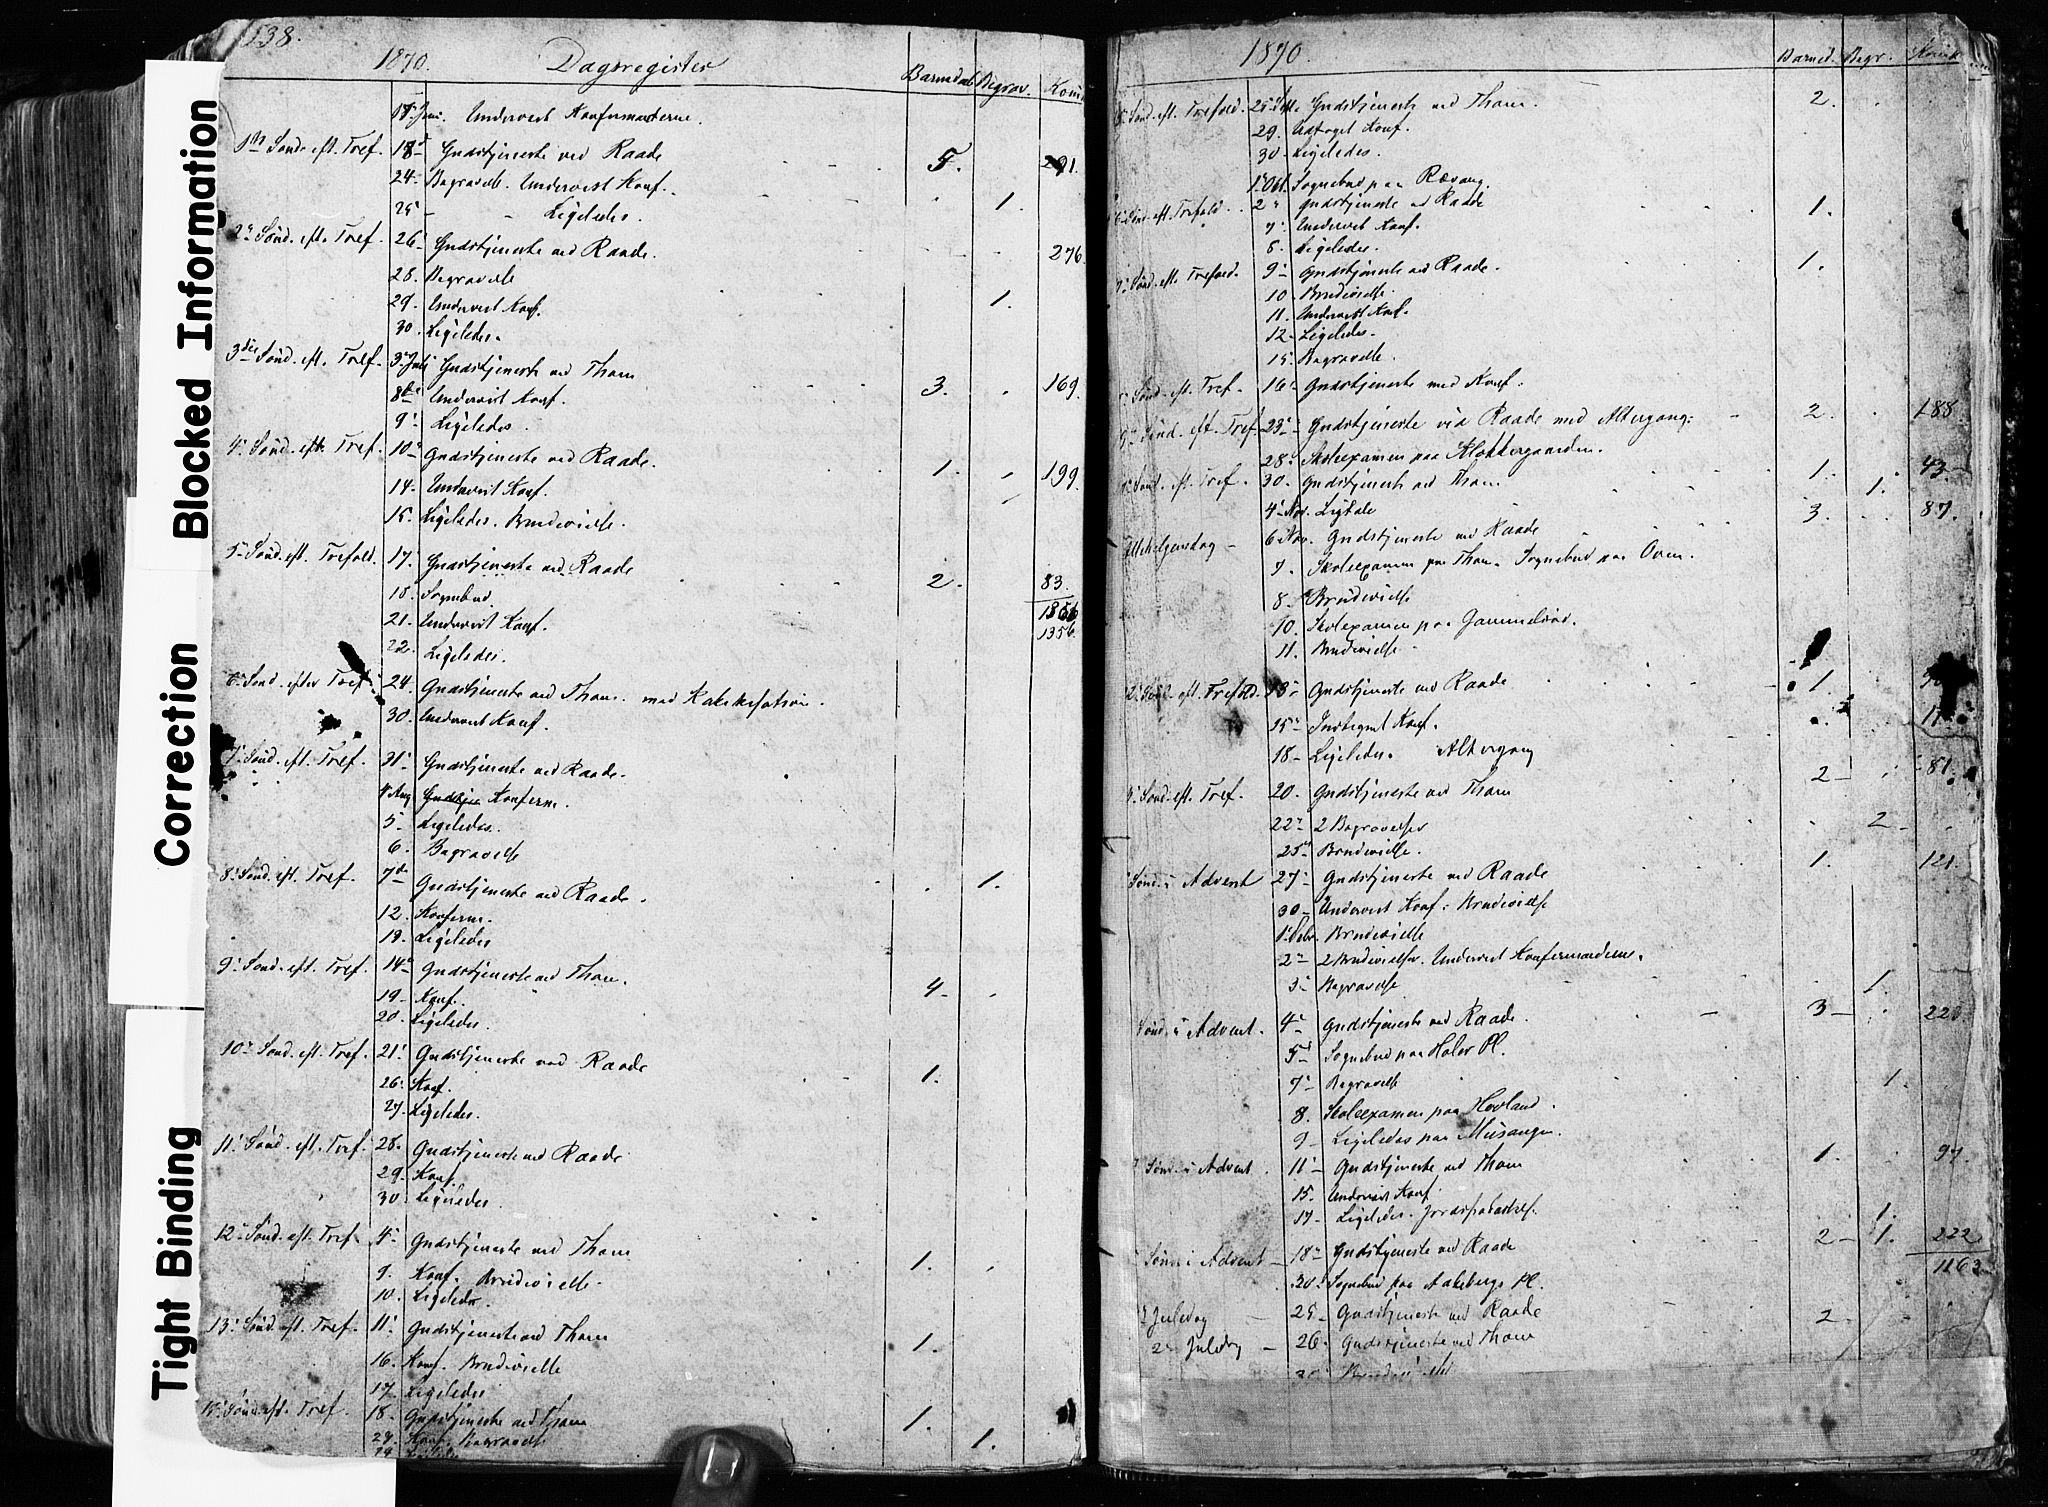 Blocked Information
Correction
Tight Binding
138.
1870. Dagsregister Barnedaab Begrav. Komm
17 Juni. Undervist Konfermanterne.
1ste Sønd. eft. Tref. 18 Gudstjeneste ved Raade 5. 291.
24. Begravelse. Undervist Konf. 1.
25 - - Ligeledes.
2n Sønd. eft. Tref. 26 Gudstjeneste ved Raade. 276.
28. Begravelse 1.
29. Undervist Konf.
30. Ligeledes.
3die Sønd. eft. Tref. 3 Juli Gudstjeneste ved Thom 3. 169.
8de Undervist Konf.
9. Ligeledes.
4. Sønd. eft. Tref. 10 Gudstjeneste ved Raade. 1. 199.
14. Undervist Konf.
15. Ligeledes. Brudevielse.
5 Sønd. eft. Trefold. 17. Gudstjeneste ved Raade 2. 83.
18. Sognebud 1356
21. Undervist Konf. 1356.
22. Ligeledes.
6 Sønd. efter Tref. 24. Gudstjeneste ved Thom. med Katekisation.
30. Undervist Konf.
7 Sønd. eft. Tref. 31. Gudstjeneste ved Raade.
4 Aug. Konferm.
5 Ligeledes.
6. Begravelse
8. Sønd. eft. Tref. 7de Gudstjeneste ved Raade. 1.
12. Konferm.
19. Ligeledes
9. Sønd. eft. Tref. 14 Gudstjeneste ved Thom. 4.
19 Konf.
20. Ligeledes.
10. Sønd. eft. Tref. 21. Gudstjeneste ved Raade 1.
26. Konf.
27. Ligeledes.
11. Sønd. eft. Tref. 28. Gudstjeneste ved Raade
29. Konf.
30. Ligeledes
12 Sønd. eft. Tref. 4 Gudstjeneste ved Thom 1.
9. Konf. Brudevielse.
10. Ligeledes.
13. Sønd. eft. Tref. 11. Gudstjeneste ved Thom 1.
16. Konf. Brudevielse
17. Ligeledes
Sønd. eft. Tref. 18. Gudstjeneste ved Thom 1.
Konf. Begravelse 1.
1870. Barned. Begr. Komm
Sønd. eft. Trefold. 25 Gudstjeneste ved Thom. 2.
29. Konf.
30. Ligeledes.
1 Okt. Sognebud paa
Sønd. eft. Trefold. 2 Gudstjeneste ved Raade 1.
7. Undervist Konf.
8. Ligeledes.
Sønd. eft. Trefold. 9 Gudstjeneste ved Raade. 1.
10. Brudevielse.
11. Undervist Konf.
12. Ligeledes.
15. Begravelse.
Sønd. eft. Tref. 16 Gudstjeneste med Konf.
Sønd. eft. Tref. 23 Gudstjeneste ved Raade med Altergang. 2. 188.
28. Skoleexamen paa Klokkergaarden.
Sønd. eft. Tref. 30. Gudstjeneste ved Thom 1. 43
4 Nov. Ligtale 1.
Allehelgensdag 6 Nov. Gudstjeneste ved Raade 3. 87.
7. Skoleexamen paa Thom. Sognebud paa Oven.
8. Brudevielse
10. Skolexamen paa
11. Brudevielse
Sønd. eft. Trefold. 13 Gudstjeneste ved Raade 1.
15 Konf.
18 Ligeledes. Altergang
Sønd. eft. Tref. 20. Gudstjeneste ved Thom 2 81.
22 2 Begravelser 2
25 Brudevielse.
Sønd. i Advent 27 Gudstjeneste ved Raade 1. 121.
30 Undervist Konf. Brudevielse
1. Debr. Brudevielse
2 2 Brudevielser. Undervist Konfermanderne.
3 Begravelse 1.
Sønd. i Advent. 4 Gudstjeneste ved Raade. 3
5 Sognebud paa Holer Pl.
7 Begravelse 1.
8. Skoleexamen paa Hovland.
9 Ligeledes paa Missingen.
Sønd. i Advent. 11 Gudstjeneste ved Thom 1. 97.
15. Undervist Konf
17 Ligeledes. Jordspaakastelse. 1.
Sønd. i Advent 18 Gudstjeneste ved Raade 2 1. 222
20. Sognebud paa Aakebergs Pl. 1163
Juledag 25 Gudstjeneste ved Raade 2
2 Juledag 26. Gudstjeneste ved Thom
30 Brudevielse